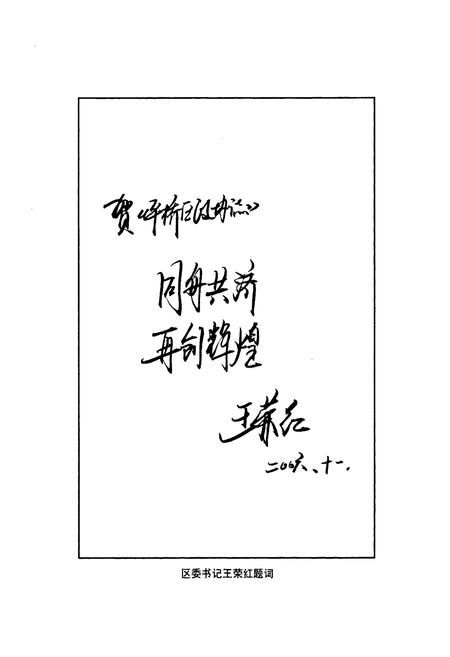 贺《平桥区政协志》
同舟共济
再创辉煌
王荣红
二〇〇六、十一.
区委书记王荣红题词